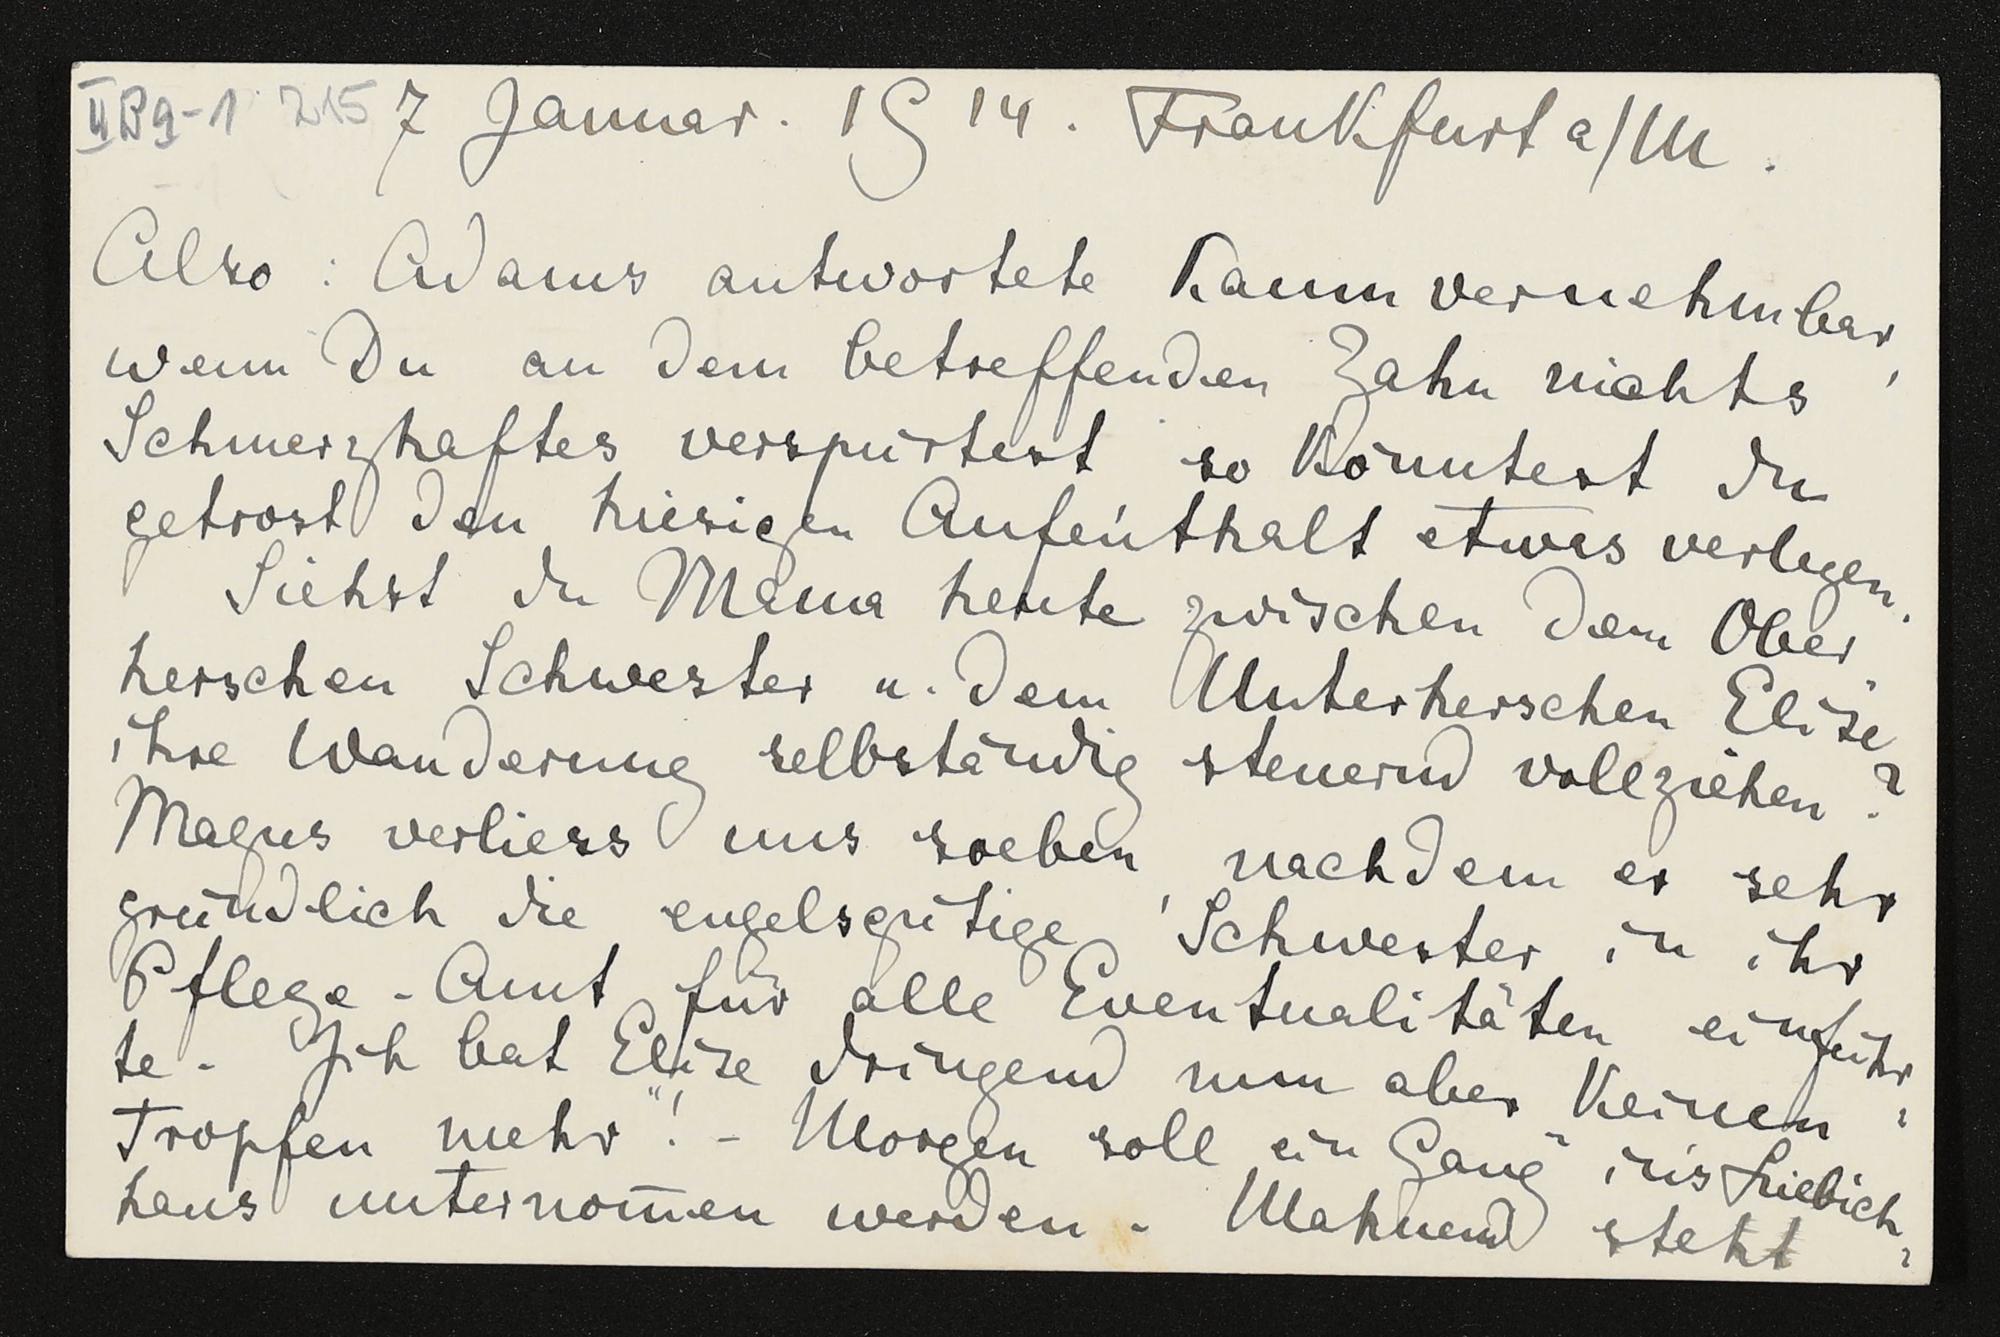 II B 9-1 215 7 Januar. 1914. Frankfurt a/M.
Also: Adams antwortete kaum vernehmbar,
wenn Du an dem betreffenden Zahn nichts
Schmerzhaftes verspürtest so könntest du
getrost den hiesigen Aufenthalt etwas verlegen.
Siehst du Mama heute zwischen dem Ober
herschen Schwester u. dem Unterherschen Elise
ihre Wanderung selbständig steuernd vollziehen?
Magus verliess uns soeben, nachdem er sehr
gründlich die engelsgütige Schwester in ihr
Pflege-Amt für alle Eventualitäten einführ-
te. Ich bat Elise dringend nun aber keinen
"Tropfen mehr"! - Morgen soll ein Gang ins Liebich-
haus unternom̅en werden. Mahnend steht